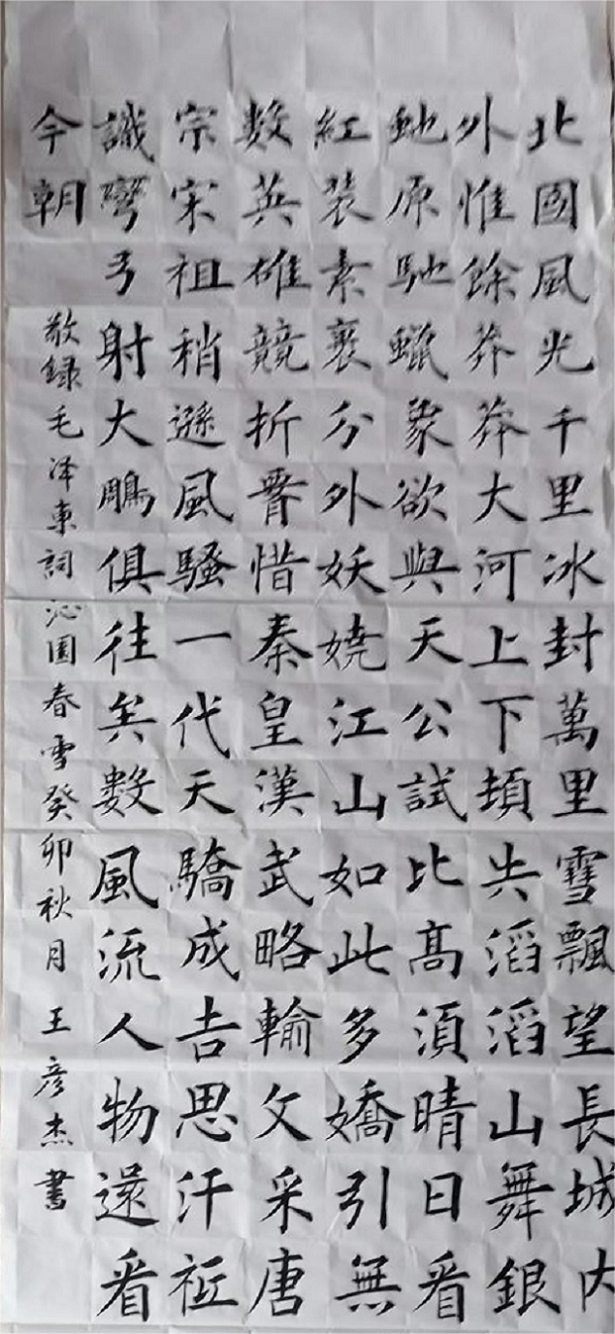 北國風光千里冰封萬里雪飄望長城内
外惟餘莽莽大河上下頓失滔滔山舞銀
虵原馳蠟象欲與天公試比高須晴日看
紅装素裹分外妖娆江山如此多嬌引無
數英雄競折腰惜秦皇漢武略輸文采唐
宗宋祖稍遜風騷一代天驕成吉思汗祗
識彎弓射大鵰俱往矣數風流人物還看
今朝
敬録毛泽東詞沁園春雪癸卯秋月王彦杰書